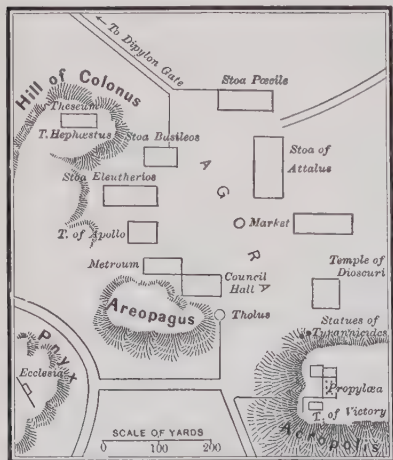 To Dipylon Gate
Hill of Colonus
Theseum
T. Hephæstus
Stoa Pœcile
Stoa Basileos
Stoa of
Attalus
Stoa Eleutherios
AGORA
T. of Apollo
Market
Metroum
Council
Hall
Temple of
Dioscuri
Areopagus
Tholus
Statues of
Tyrannicides
Pnyx
Ecclesia
Propylæa
T. of Victory
Acropolis
SCALE OF YARDS
0 100 200